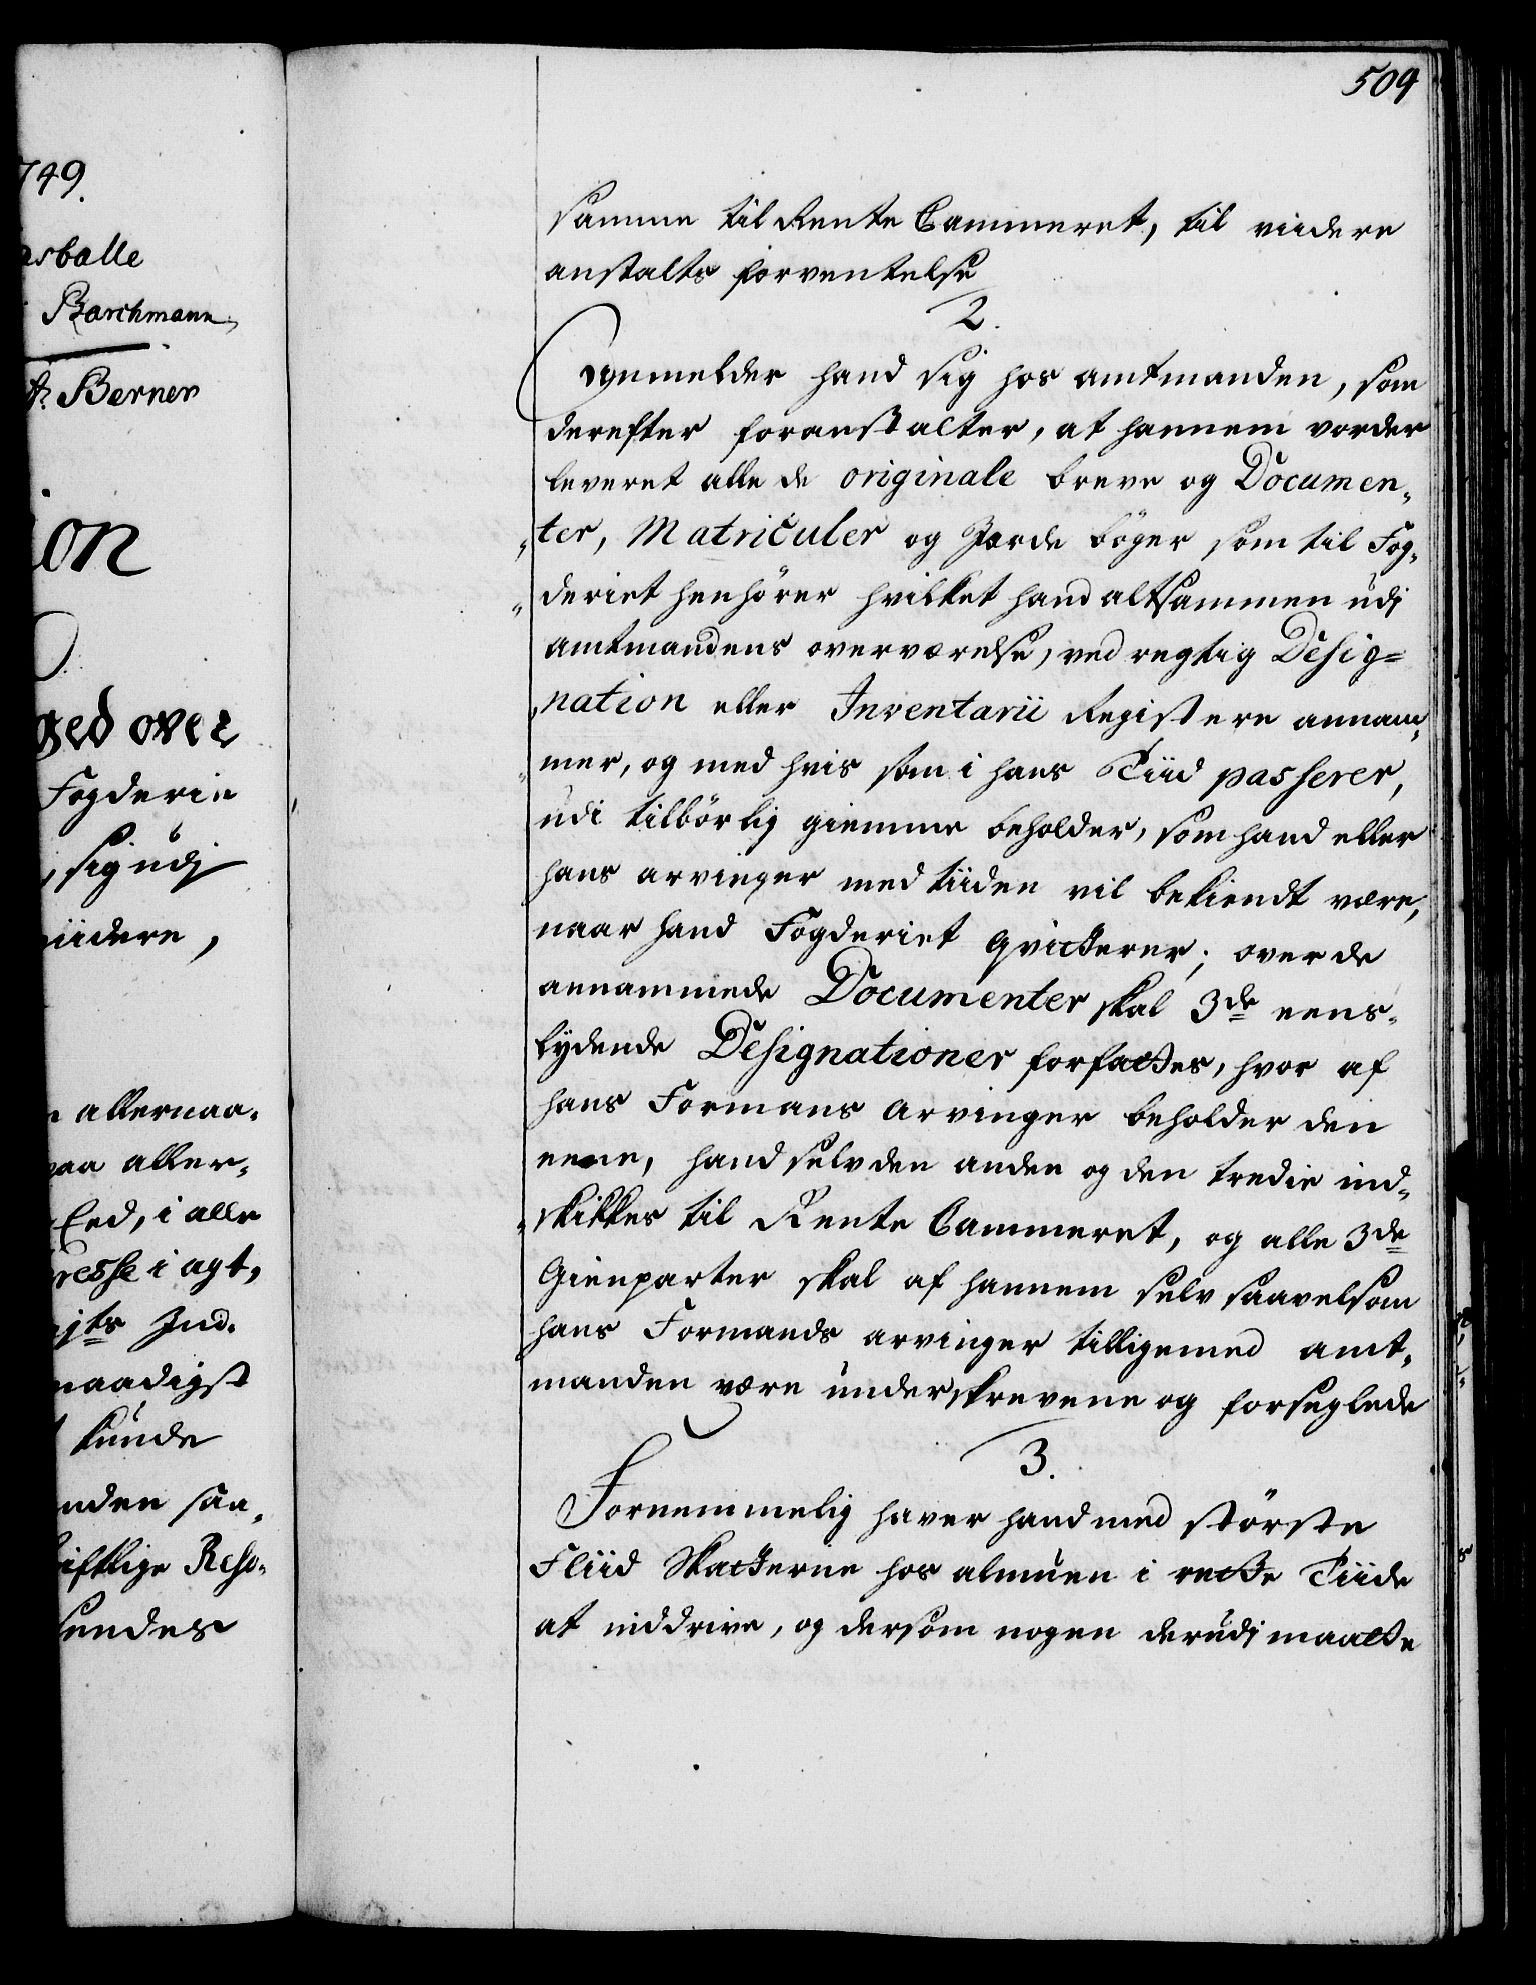 749.
asballe
Barchmann
A. Berner
ion
ged over
Fogderie
, sig udj
viidere,
allernaa-
paa aller-
Eed, i alle
resse i agt,
jts Ind-
naadigst
kunde
nden saa-
riftlige Reso-
sendes
509
samme til Rente Cammeret, til viidere
anstalts forventelse
2.
Anmelder hand sig hos amtmanden, som
derefter foranstalter, at hannem vorder
leveret alle de originale breve og Documen-
ter, Matriculer og Jorde bøger som til Fog-
deriet henhører hvilket hand altsammen udj
amtmandens overværelse, ved regtig Desig-
nation eller Inventarii Registere annam-
mer, og med hvis som i hans Tiid passerer,
udi tilbørlig giemme beholder, som hand eller
hans arvinger med tiiden vil bekiendt være,
naar hand Fogderiet qvitterer; over de
annammede Documenter skal 3de eens-
lydende Designationer forfattes, hvor af
hans Formans Arvinger beholder den
eene, hand selv den anden og den tredie ind-
skikkes til Rente Cammeret, og alle 3de
Gienparter skal af hannem selv saavelsom
hans Formands arvinger tilligemed amt-
manden være underskrevene og forseglede
3.
Fornemmelig haver hand med største
Fliid Skatterne hos almuen i rette Tiide
at inddrive, og dersom nogen derudj maatte